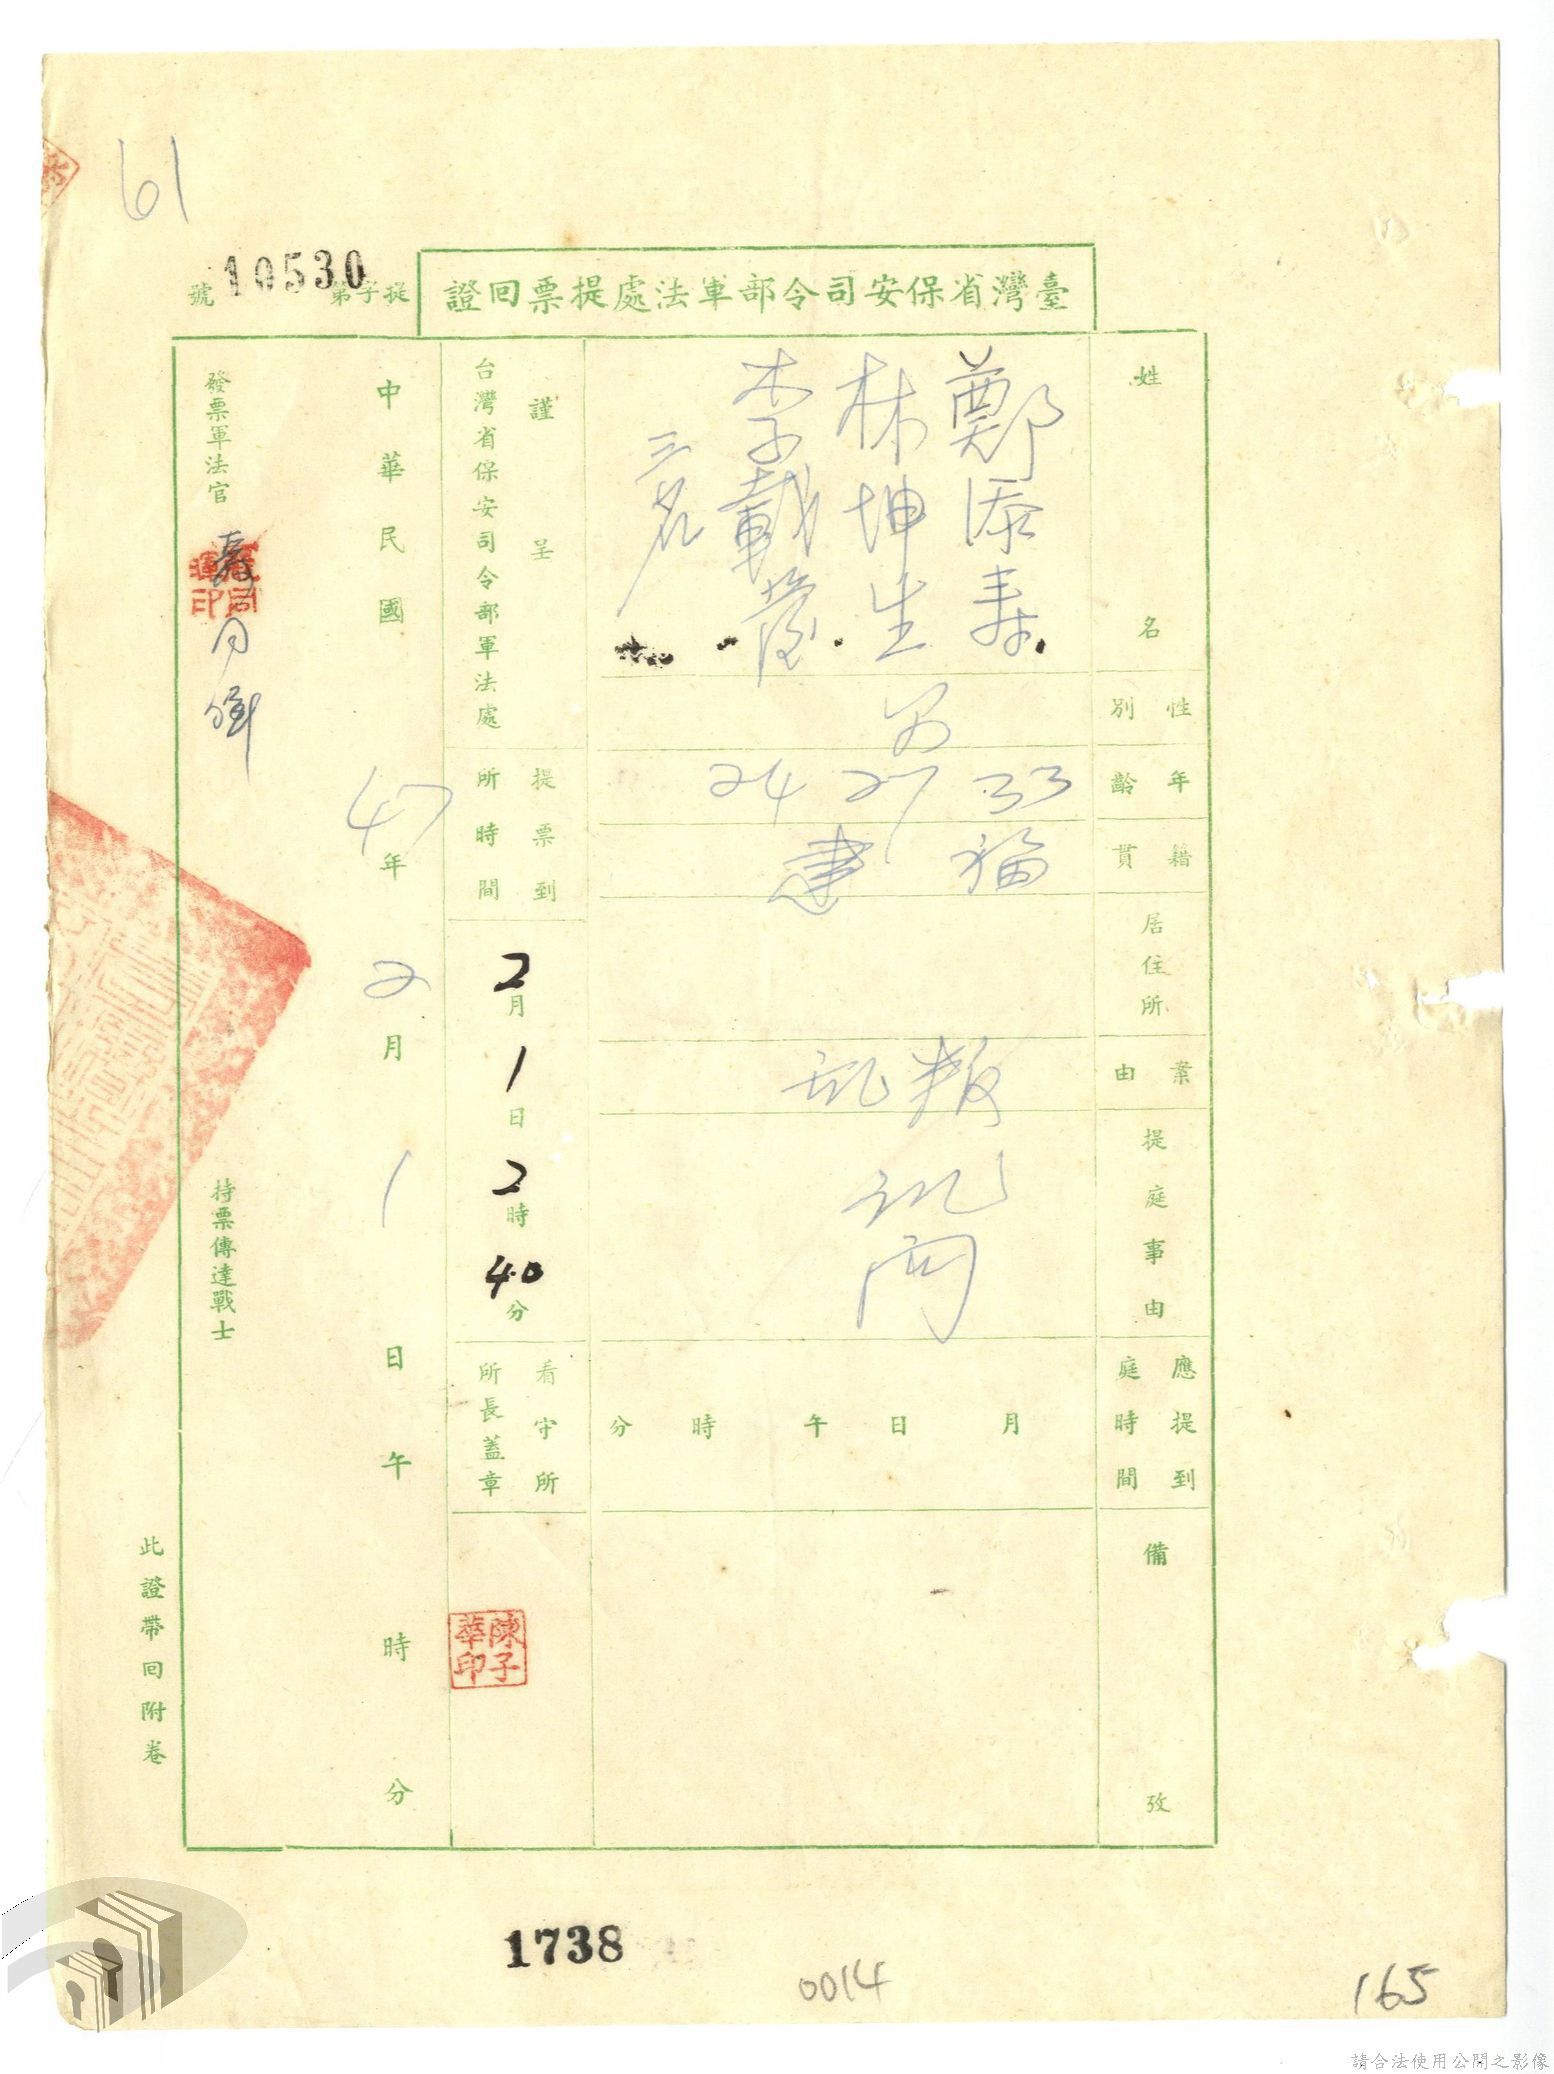 61
臺灣省保安司令部軍法處提票回證
提字第10530號
姓名
鄭添壽
林坤生
李載
三名
性別
男
年齡
33
27
24
籍貫
福建
居住所
案由
叛乱
提庭事由
訊問
應提到庭時間
月 日 午 時 分
備攷
謹呈
台灣省保安司令部軍法處
提票到所時間
2月1日2時40分
看守所所長蓋章
陳子華印
中華民國47年2月1日午時分
發票軍法官
持票傳達戰士
此證帶回附卷
1738
0014
165
請合法使用公開之影像